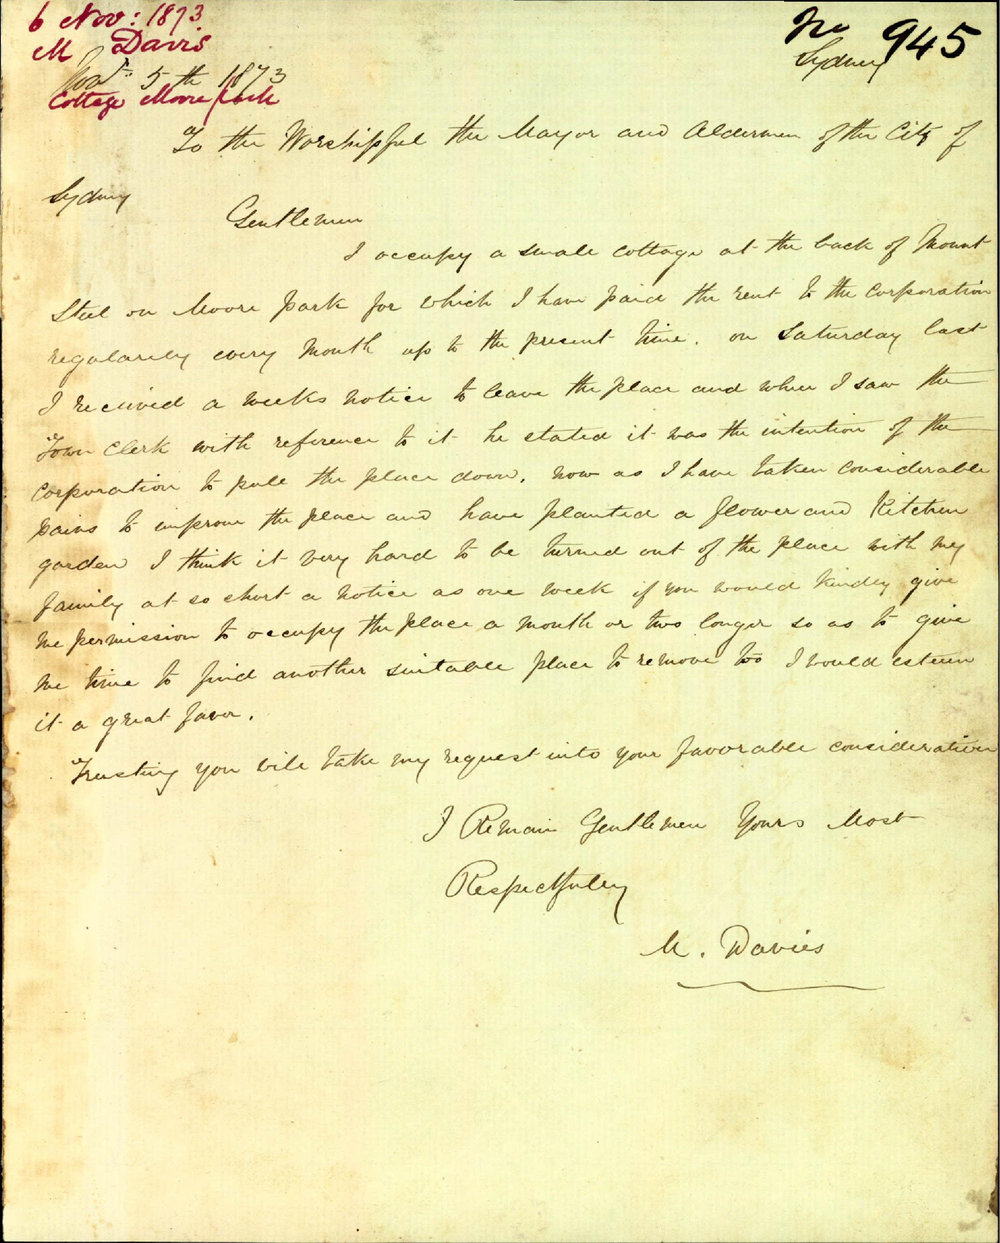 6 Nov: 1873
M Davis
No 945
Sydney
Novr 5th 1873
Cottage Moore Park
To the Worshipful the Mayor and Aldermen of the City of
Sydney
Gentlemen
I occupy a small cottage at the back of Mount
Steel on Moore Park for which I have paid the rent to the Corporation
regularely every Month up to the present time. on Saturday last
I received a weeks notice to leave the place and when I saw the
Town Clerk with reference to it he stated it was the intention of the
Corporation to pull the place down. now as I have taken considerable
pains to improve the place and have planted a flower and Kitchen
garden I think it very hard to be turned out of the place with my
family at so short a notice as one week if you would kindly give
me permission to occupy the place a month or two longer so as to give
me time to find another suitable place to remove too I would esteem
it a great favor.
Trusting you will take my request into your favorable consideration
I Remain Gentlemen Yours Most
Respectfully
M. Davies